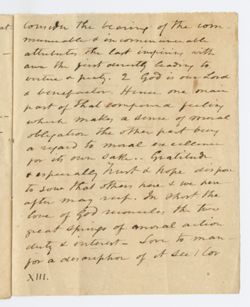 consider the bearing of the com
municable & incommunicable
attributes the last inspiring with
awe the first directly leading to
virtue & piety. 2 God is our Lord
& benefactor. Hence one main
part of that compound feeling
which makes a sense of moral
obligation the other part being
a regard to moral excellence
for its own sake. Gratitude
& especially trust & hope dispose
to sow that others here & we here
after may reap. In short the
love of God reconciles the two
great springs of moral action
duty & interest - Love to man
for a description of it see 1 Cor
XIII.